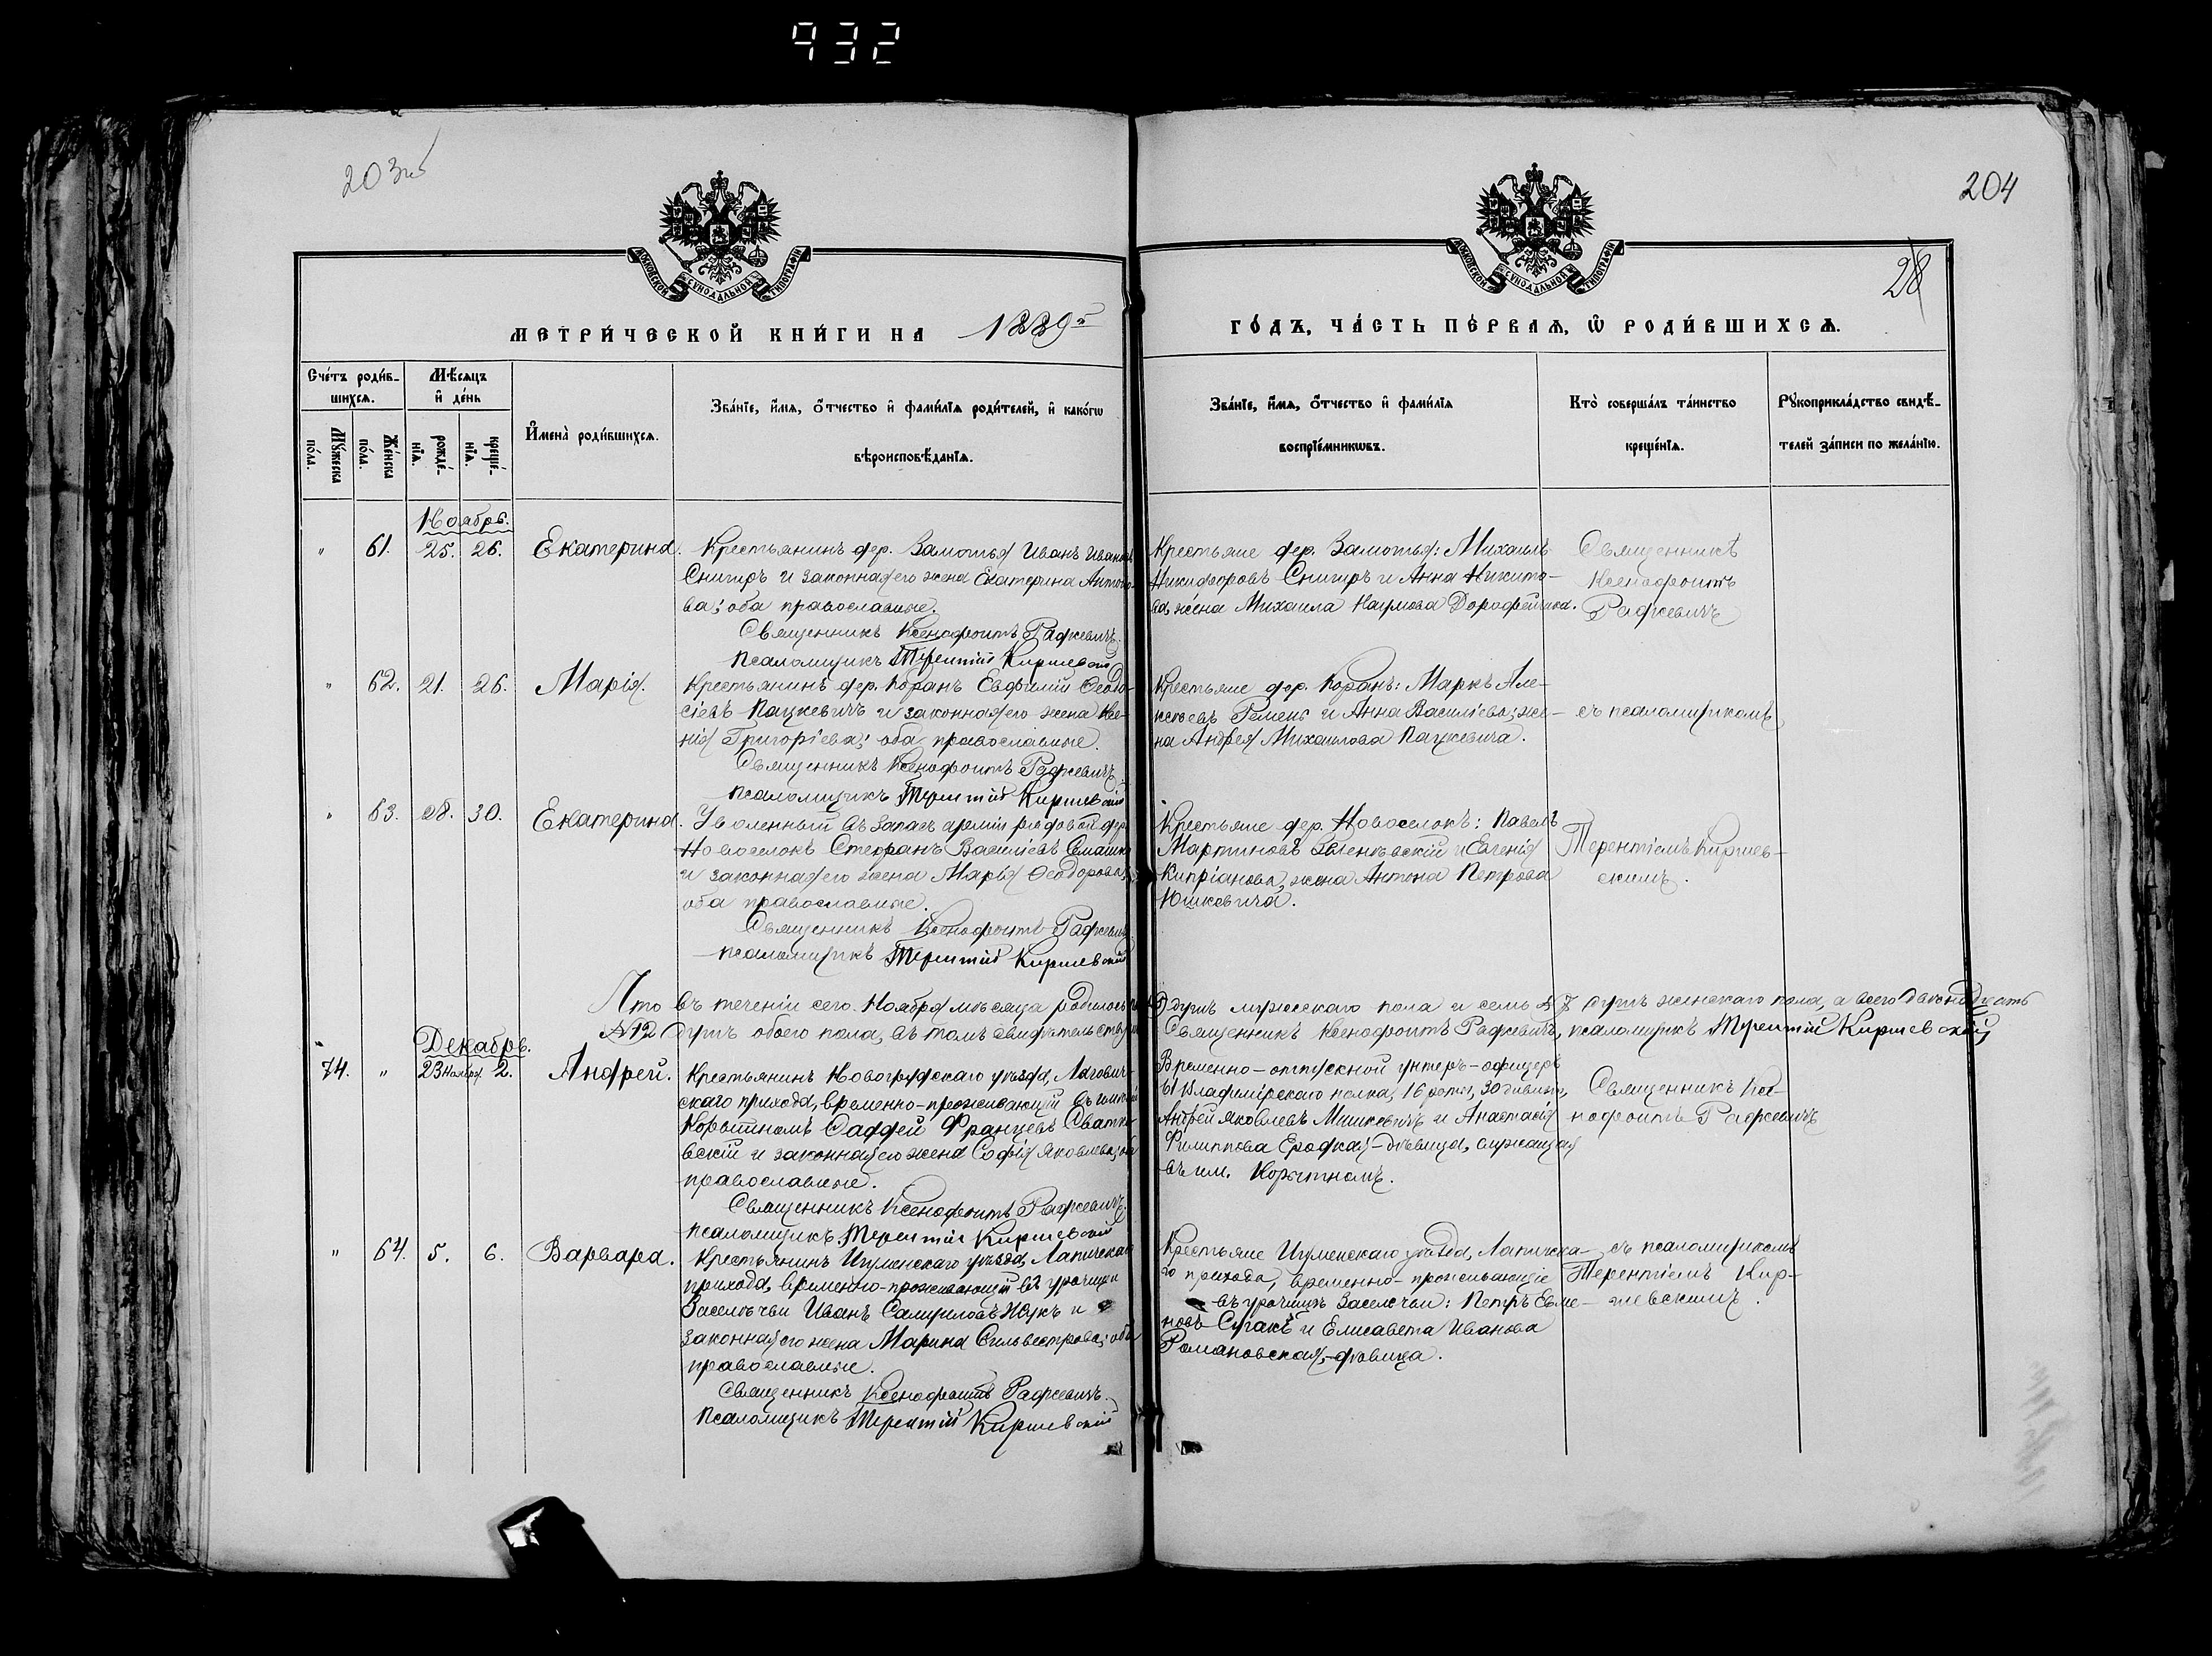 932
203об
204
28
МОСКОВСКОЙ СѴНОДАЛЬНОЙ ТИПОГРАФІИ
МОСКОВСКОЙ СѴНОДАЛЬНОЙ ТИПОГРАФІИ
МЕТРИ́ЧЕСКОЙ КНИ́ГИ НА 1889й
ГО́ДЪ, ЧА́СТЬ ПЕ́РВАѦ, Ѡ РОДИ́ВШИХСѦ.
Сче́тъ роди́в-
шихсѧ.
Мꙋ́жеска по́ла.
Же́нска по́ла.
Мѣ́сѧцъ
и҆ де́нь
рожде́-нїѧ.
креще́-нїѧ.
И҆мена̀ роди́вшихсѧ.
Зва́нїе, и҆́мѧ, ѻ҆́тчество и҆ фамі́лїѧ роди́телей, и҆ како́гѡ
вѣроисповѣ́данїѧ.
Зва́нїе, и҆́мѧ, ѻ҆́тчество и҆ фамі́лїѧ
воспрїе́мникѡвъ.
Кто̀ соверша́лъ та́инство
креще́нїѧ.
Рꙋкоприкла́дство свидѣ́-
телей за́писи по жела́нїю.
Ноябрь.
" 61. 25. 26. Екатерина.
Крестьянинъ дер. Замостья Иванъ Ивановъ
Снитръ и законная его жена Екатерина Антоно-
ва; оба православные.
Священникъ Ксенофонтъ Радкевичъ.
Псаломщикъ Терентій Киршевскій
Крестьяне дер. Замостья: Михаилъ
Никифоровъ Снитръ и Анна Никито-
ва, жена Михаила Наумова Дорофейчика.
Священникъ
Ксенофонтъ
Радкевичъ
" 62. 21. 26. Марія.
Крестьянинъ дер. Поранъ Евфимій Ѳеодо-
сіевъ Пацкевичъ и законная его жена Ксе-
нія Григоріева; оба православные.
Священникъ Ксенофонтъ Радкевичъ.
Псаломщикъ Терентій Киршевскій
Крестьяне дер. Поранъ: Маркъ Але-
ксѣевъ Ремень и Анна Василіева, же-
на Андрея Михаилова Пацкевича.
съ псаломщикомъ
" 63. 28. 30. Екатерина.
Уволенный въ запасъ арміи рядовой дер.
Новоселокъ Стефанъ Василіевъ Семашко
и законная его жена Марія Ѳеодорова,
оба православные.
Священникъ Ксенофонтъ Радкевичъ
Псаломщикъ Терентій Киршевскій
Крестьяне дер. Новоселокъ: Павелъ
Мартиновъ Зеленковскій и Евгенія
Кипріанова, жена Антона Петрова
Юшкевича.
Терентіемъ Киршев-
скимъ.
Что въ теченіи сего Ноября мѣсяца родилось душъ мужескаго пола и семь 7 душъ женскаго пола, а всего двенадцать
№12 душъ обоего пола, въ томъ свидѣтельствуемъ Священникъ Ксенофонтъ Радкевичъ, псаломщикъ Терентій Киршевскій
Декабрь.
74. " 23 Ноября. 2. Андрей.
Крестьянинъ Новогрудскаго уѣзда, Лагович-
скаго прихода, временно-проживающій въ имѣніи
Корытномъ Ѳаддей Францевъ Сватко-
вскій и законная его жена Софія Яковлева; оба
православные.
Священникъ Ксенофонтъ Радкевичъ.
Псаломщикъ Терентій Киршевскій
Временно-отпускной унтеръ-офицеръ
61 Владимірскаго полка, 16 роты, 30 дивизіи,
Андрей Яковлевъ Мишкевичъ и Анастасія
Филиппова Ероцкая-дѣвица, служащая
въ им. Корытномъ.
Священникъ Ксе-
нофонтъ Радкевичъ
" 64. 5. 6. Варвара.
Крестьянинъ Игуменскаго уѣзда, Лапичскаго
прихода, временно-проживающій въ урочищѣ
Заселѣчьи Иванъ Самуиловъ Жукъ и
законная его жена Марина Сильвестрова; оба
православные.
Священникъ Ксенофонтъ Радкевичъ.
Псаломщикъ Терентій Киршевскій
Крестьяне Игуменскаго уѣзда, Лапичска-
го прихода, временно-проживающіе
въ урочищѣ Заселѣчьи: Петръ Евме-
новъ Сугакъ и Елисавета Иванова
Романовская,-дѣвица.
съ псаломщикомъ
Терентіемъ Кир-
шевскимъ.